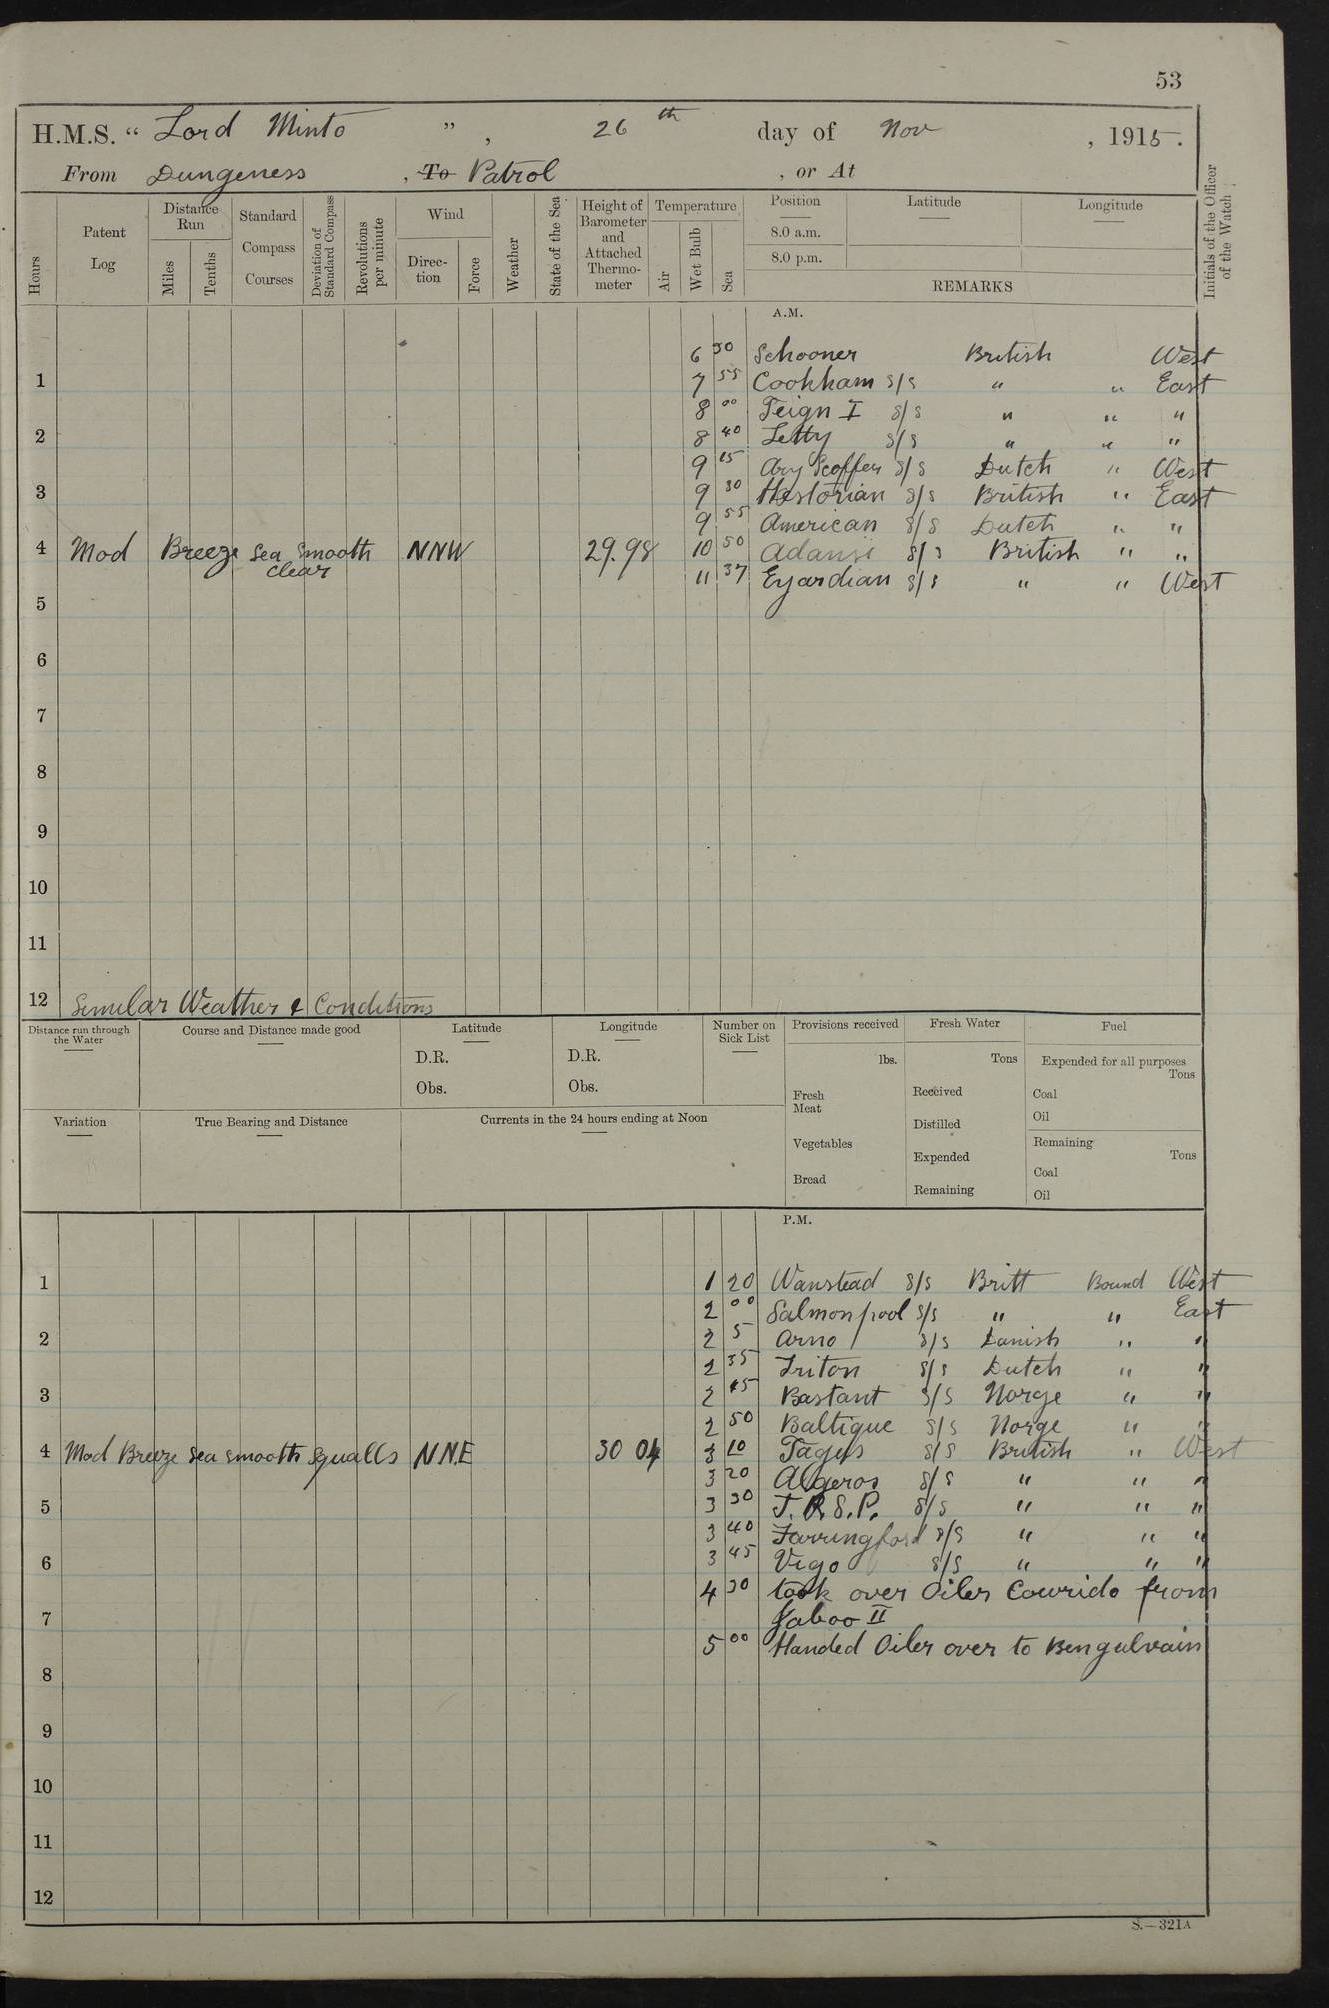 53
H.M.S. “ Lord Minto ” , 26th day of Nov , 1915.
From Dungeness , To Patrol , or At
Hours
Patent Log
Distance Run
Miles
Tenths
Standard Compass Courses
Deviation of Standard Compass
Revolutions per minute
Wind
Direction
Force
Weather
State of the Sea
Height of Barometer and Attached Thermo-meter
Temperature
Air
Wet Bulb
Sea
Position
8.0 a.m.
8.0 p.m.
Latitude
Longitude
REMARKS
Initials of the Officer of the Watch
A.M.
6 30 Schooner British West
1 7 55 Cookham s/s " " East
8 00 Teign I s/s " " "
2 8 40 Letty s/s " " "
9 15 Ary Scoffer s/s Dutch " West
3 9 30 Hestorian s/s British " East
9 55 American s/s Dutch " "
4 Mod Breeze Sea Smooth NNW 29.98 10 50 Adansi s/s British " "
clear
11 37 Eyardian s/s " " West
5
6
7
8
9
10
11
12 Simular Weather & Conditions
Distance run through the Water
Course and Distance made good
Latitude
D.R.
Obs.
Longitude
D.R.
Obs.
Number on Sick List
Provisions received
lbs.
Fresh Meat
Vegetables
Bread
Fresh Water
Tons
Received
Distilled
Expended
Remaining
Fuel
Expended for all purposes
Tons
Coal
Oil
Remaining
Tons
Coal
Oil
Variation
True Bearing and Distance
Currents in the 24 hours ending at Noon
P.M.
1 1 20 Wanstead s/s Britt Bound West
2 00 Salmonpool s/s " " East
2 2 5 Arno s/s Danish " "
2 35 Triton s/s Dutch " "
3 2 45 Bastant s/s Norge " "
2 50 Baltique s/s Norge " "
4 Mod Breeze Sea smooth Squalls N.N.E 30 04 3 10 Tagus s/s British " West
3 20 Algeros s/s " " "
5 3 30 T.R.S.P. s/s " " "
3 40 Farringford s/s " " "
6 3 45 Vigo s/s " " "
4 30 took over Oiler Cowrido from
7 Jaboo II
5 00 Handed Oiler over to Bengulvain
8
9
10
11
12
S.—321A